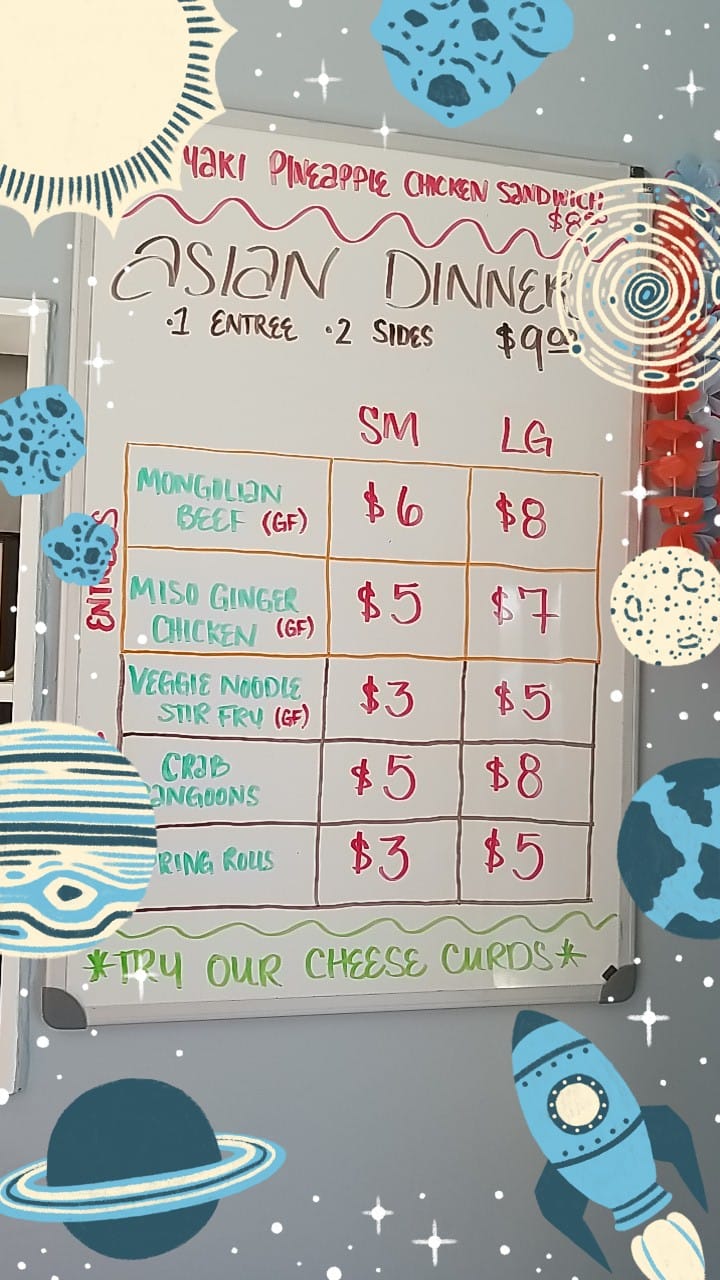 YAKI PINEAPPLE CHICKEN SANDWICH
ASIAN DINNER
·1 ENTREE ·2 SIDES $9
SM LG
MONGOLIAN
BEEF (GF) $6 $8
MISO GINGER
CHICKEN (GF) $5 $7
VEGGIE NOODLE
STIR FRY (GF) $3 $5
CRAB
ANGOONS $5 $8
RING ROLLS $3 $5
*TRY OUR CHEESE CURDS*